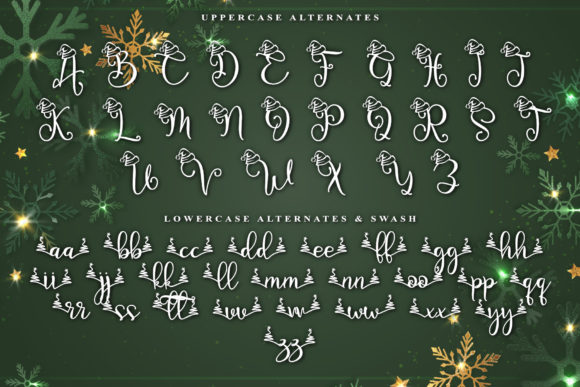 UPPERCASE ALTERNATES
A B C D E F G H I J
K L M N O P Q R S T
U V W X Y Z
LOWERCASE ALTERNATES & SWASH
aa bb cc dd ee ff gg hh
ii jj kk ll mm nn oo pp qq
rr ss tt uu vv ww xx yy
zz